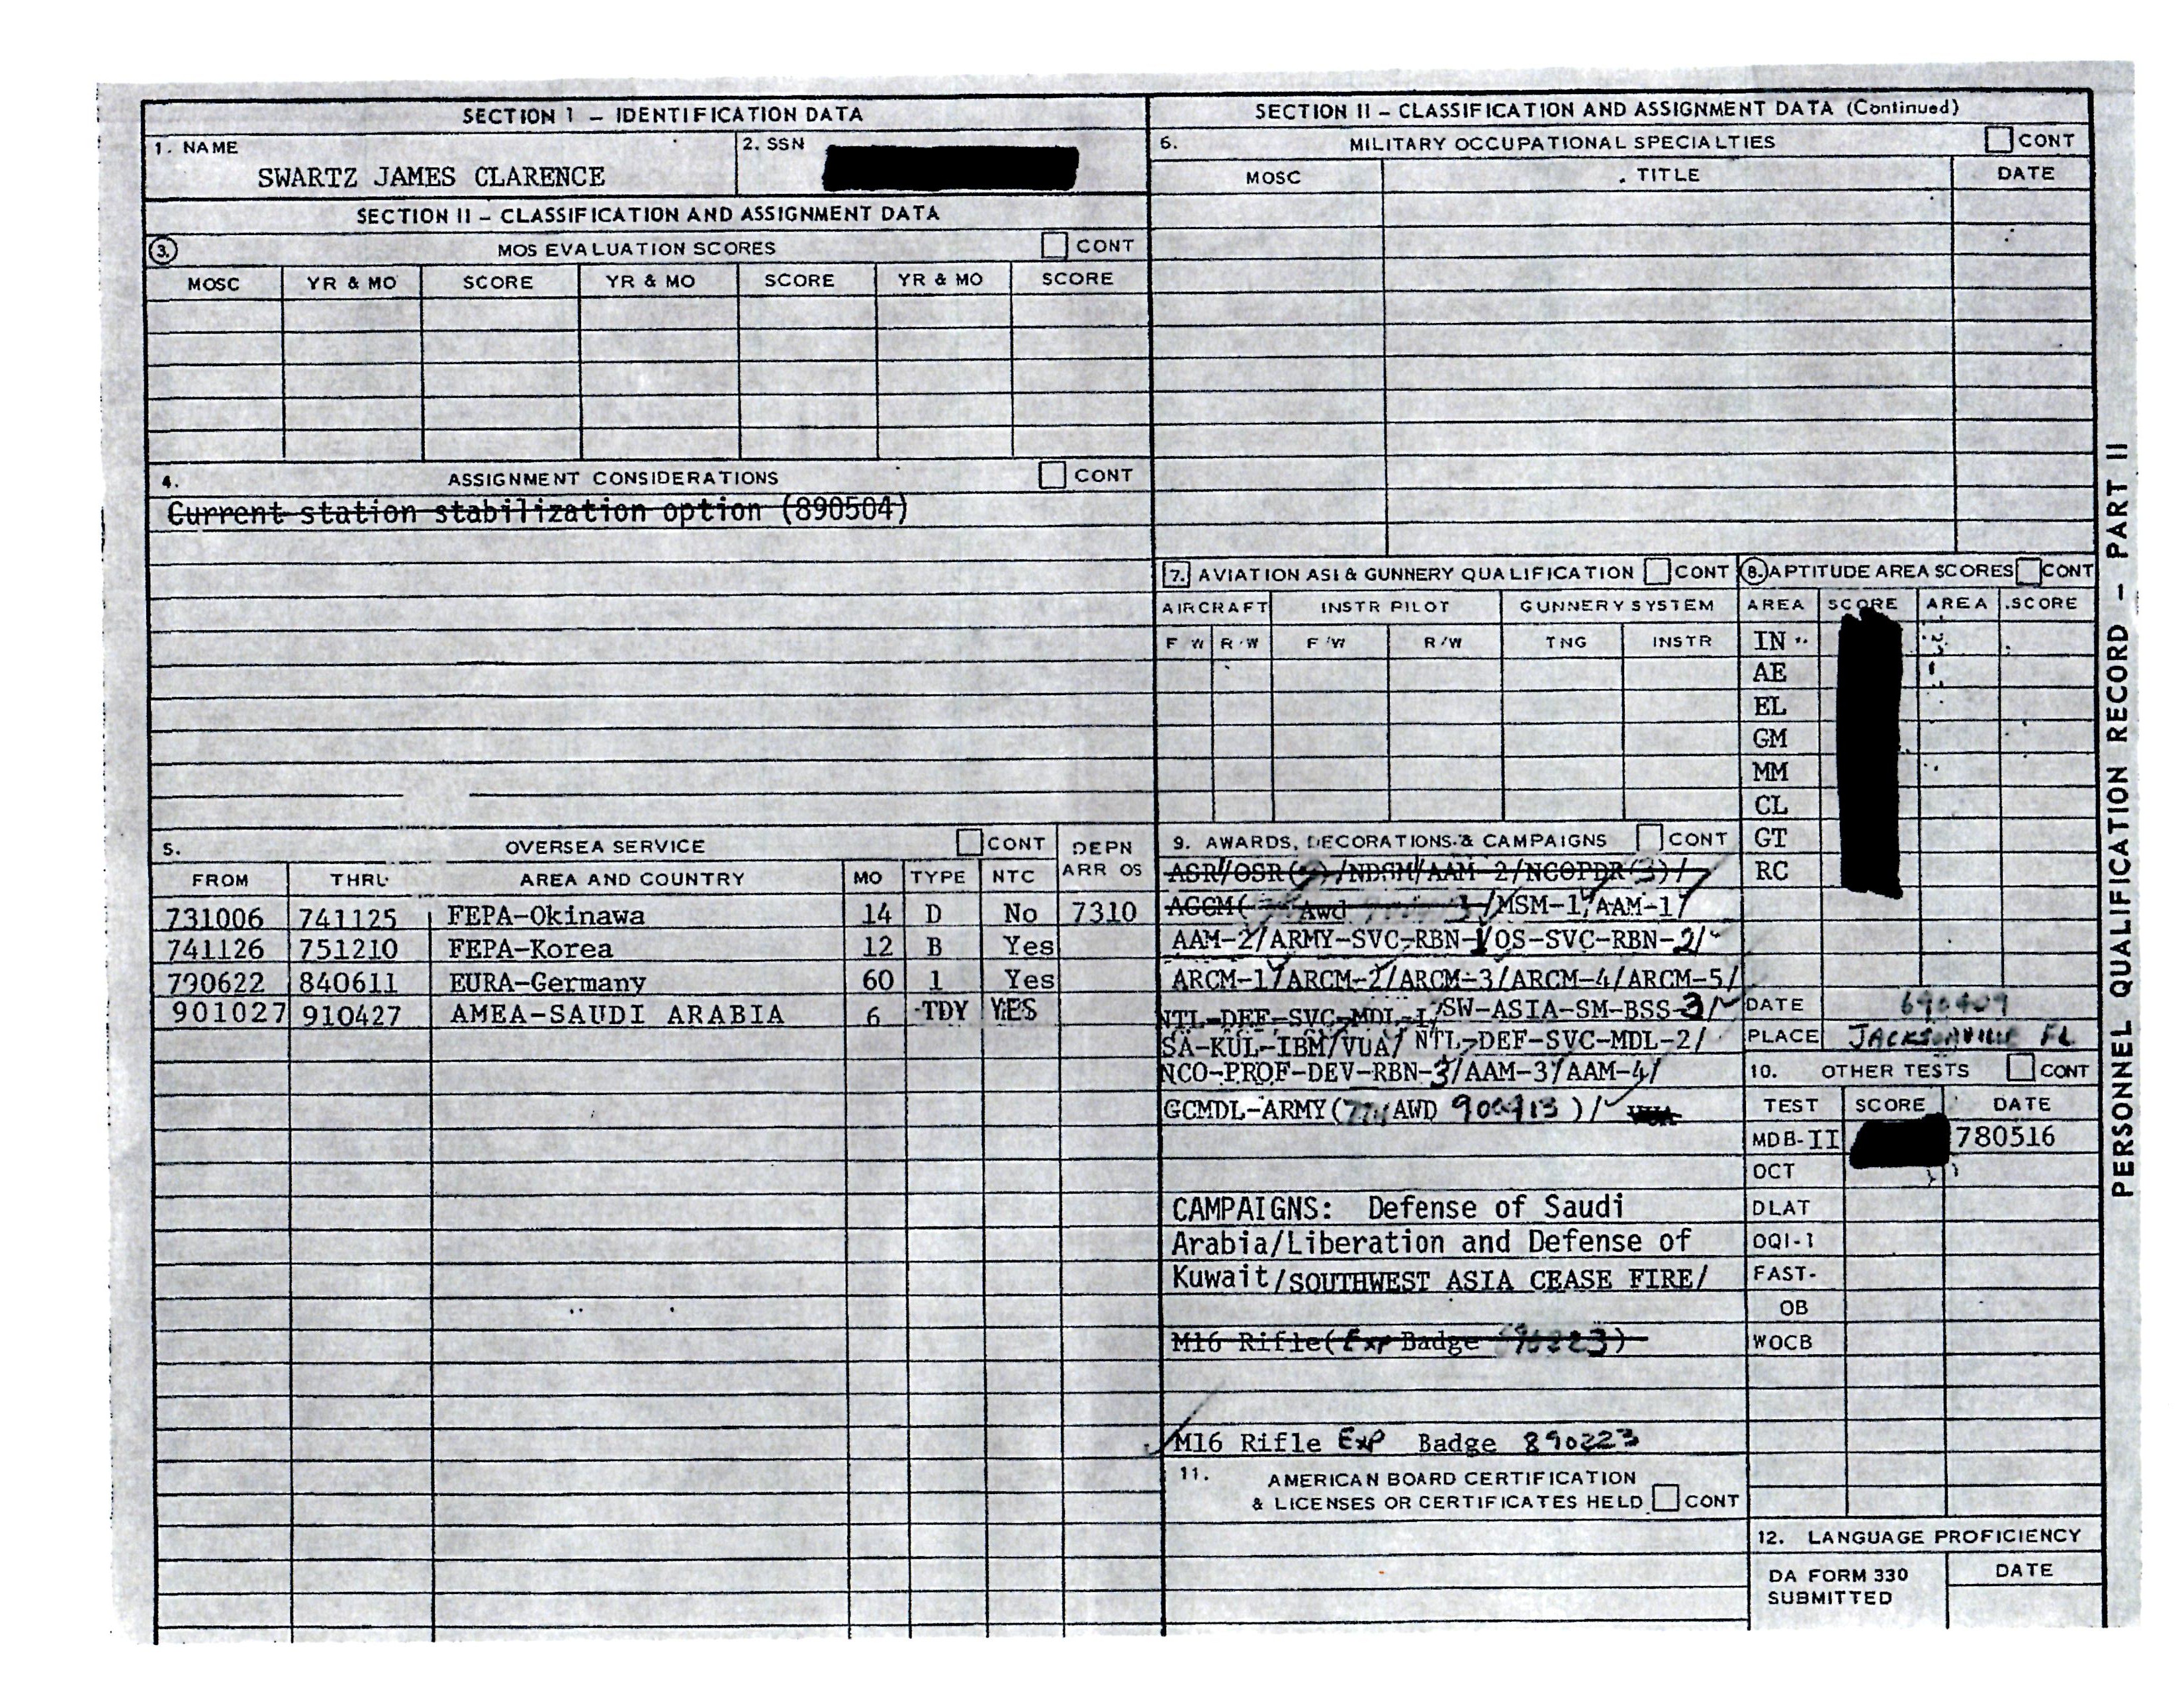 SECTION I – IDENTIFICATION DATA
1. NAME
2. SSN
SWARTZ JAMES CLARENCE
SECTION II – CLASSIFICATION AND ASSIGNMENT DATA
3. MOS EVALUATION SCORES CONT
MOSC YR & MO SCORE YR & MO SCORE YR & MO SCORE
4. ASSIGNMENT CONSIDERATIONS CONT
Current station stabilization option (890504)
5. OVERSEA SERVICE CONT DEPN ARR OS
FROM THRU AREA AND COUNTRY MO TYPE NTC
731006 741125 FEPA-Okinawa 14 D No 7310
741126 751210 FEPA-Korea 12 B Yes
790622 840611 EURA-Germany 60 1 Yes
901027 910427 AMEA-SAUDI ARABIA 6 TDY YES
SECTION II – CLASSIFICATION AND ASSIGNMENT DATA (Continued)
6. MILITARY OCCUPATIONAL SPECIALTIES CONT
MOSC TITLE DATE
7. AVIATION ASI & GUNNERY QUALIFICATION CONT
AIRCRAFT INSTR PILOT GUNNERY SYSTEM
F W R/W F/W R/W TNG INSTR
8. APTITUDE AREA SCORES CONT
AREA SCORE AREA SCORE
IN
AE
EL
GM
MM
CL
GT
RC
DATE 690409
PLACE JACKSONVILLE FL
9. AWARDS, DECORATIONS & CAMPAIGNS CONT
ASR/OSR /NDSM/AAM 2/NCOPDR(3)/
AGCM( Awd /MSM-1/AAM-1/
AAM-2/ARMY-SVC-RBN-1/OS-SVC-RBN-2/
ARCM-1/ARCM-2/ARCM-3/ARCM-4/ARCM-5/
NTL-DEF-SVC-MDL-1/SW-ASIA-SM-BSS-3/
SA-KUL-IBM/VUA/ NTL-DEF-SVC-MDL-2/
NCO-PROF-DEV-RBN-3/AAM-3/AAM-4/
GCMDL-ARMY( AWD )/
CAMPAIGNS: Defense of Saudi
Arabia/Liberation and Defense of
Kuwait/SOUTHWEST ASIA CEASE FIRE/
M16 Rifle(Exp Badge )
M16 Rifle Exp Badge 890223
10. OTHER TESTS CONT
TEST SCORE DATE
MDB-II 780516
OCT
DLAT
OQI-1
FAST-
OB
WOCB
11. AMERICAN BOARD CERTIFICATION
& LICENSES OR CERTIFICATES HELD CONT
12. LANGUAGE PROFICIENCY
DA FORM 330 DATE
SUBMITTED
PERSONNEL QUALIFICATION RECORD – PART II